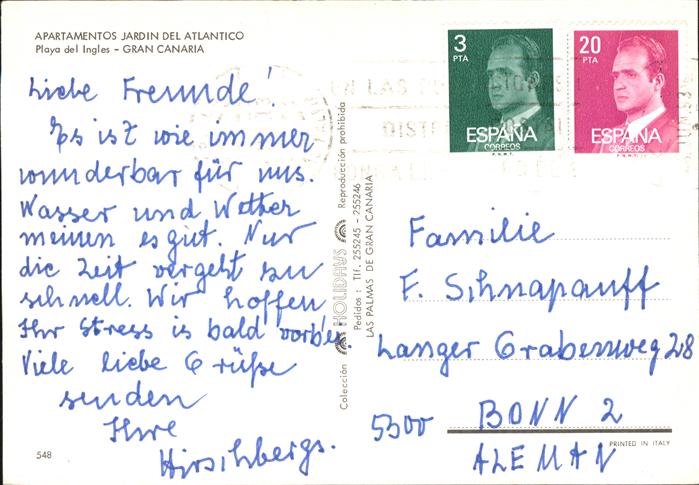 APARTAMENTOS JARDIN DEL ATLANTICO
Playa del Ingles – GRAN CANARIA
Liebe Freunde!
Es ist wie immer
wunderbar für uns.
Wasser und Wetter
meinen es gut. Nur
die Zeit vergeht zu
schnell. Wir hoffen
Ihr Stress is bald vorbei.
Viele liebe Grüße
senden
Ihre
Hirschbergs.
548
Colección HOLIDAYS Reproducción prohibida
Pedidos : Tlf. 255245 - 255246
LAS PALMAS DE GRAN CANARIA
3
PTA
ESPAÑA
CORREOS
F.N.M.T.
20
PTA
ESPAÑA
CORREOS
F.N.M.T.
EN LAS
Familie
F. Schnapauff
Langer Grabenweg 28
5300 BONN 2
ALEMAN
PRINTED IN ITALY